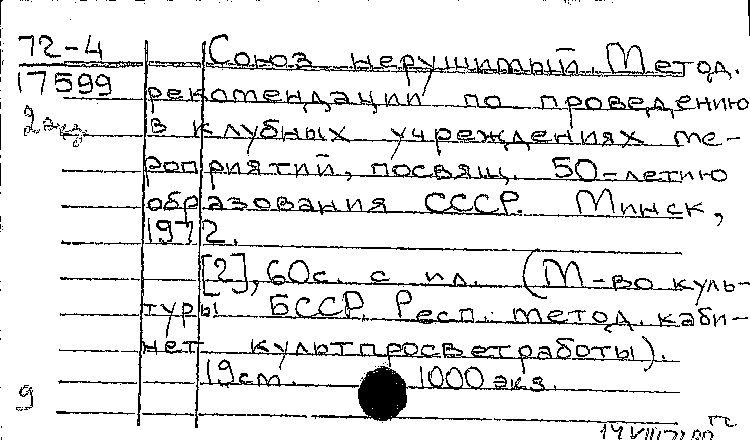 72-4 Союз нерушимый. Метод.
17599 рекомендации по проведению
2 экз в клубных учреждениях ме-
роприятий, посвящ. 50-летию
образования СССР. Минск,
1972.
[2], 60с. с ил. (М-во куль-
туры БССР. Респ. метод. каби-
нет культпросветработы).
19см. 1000 экз.
9